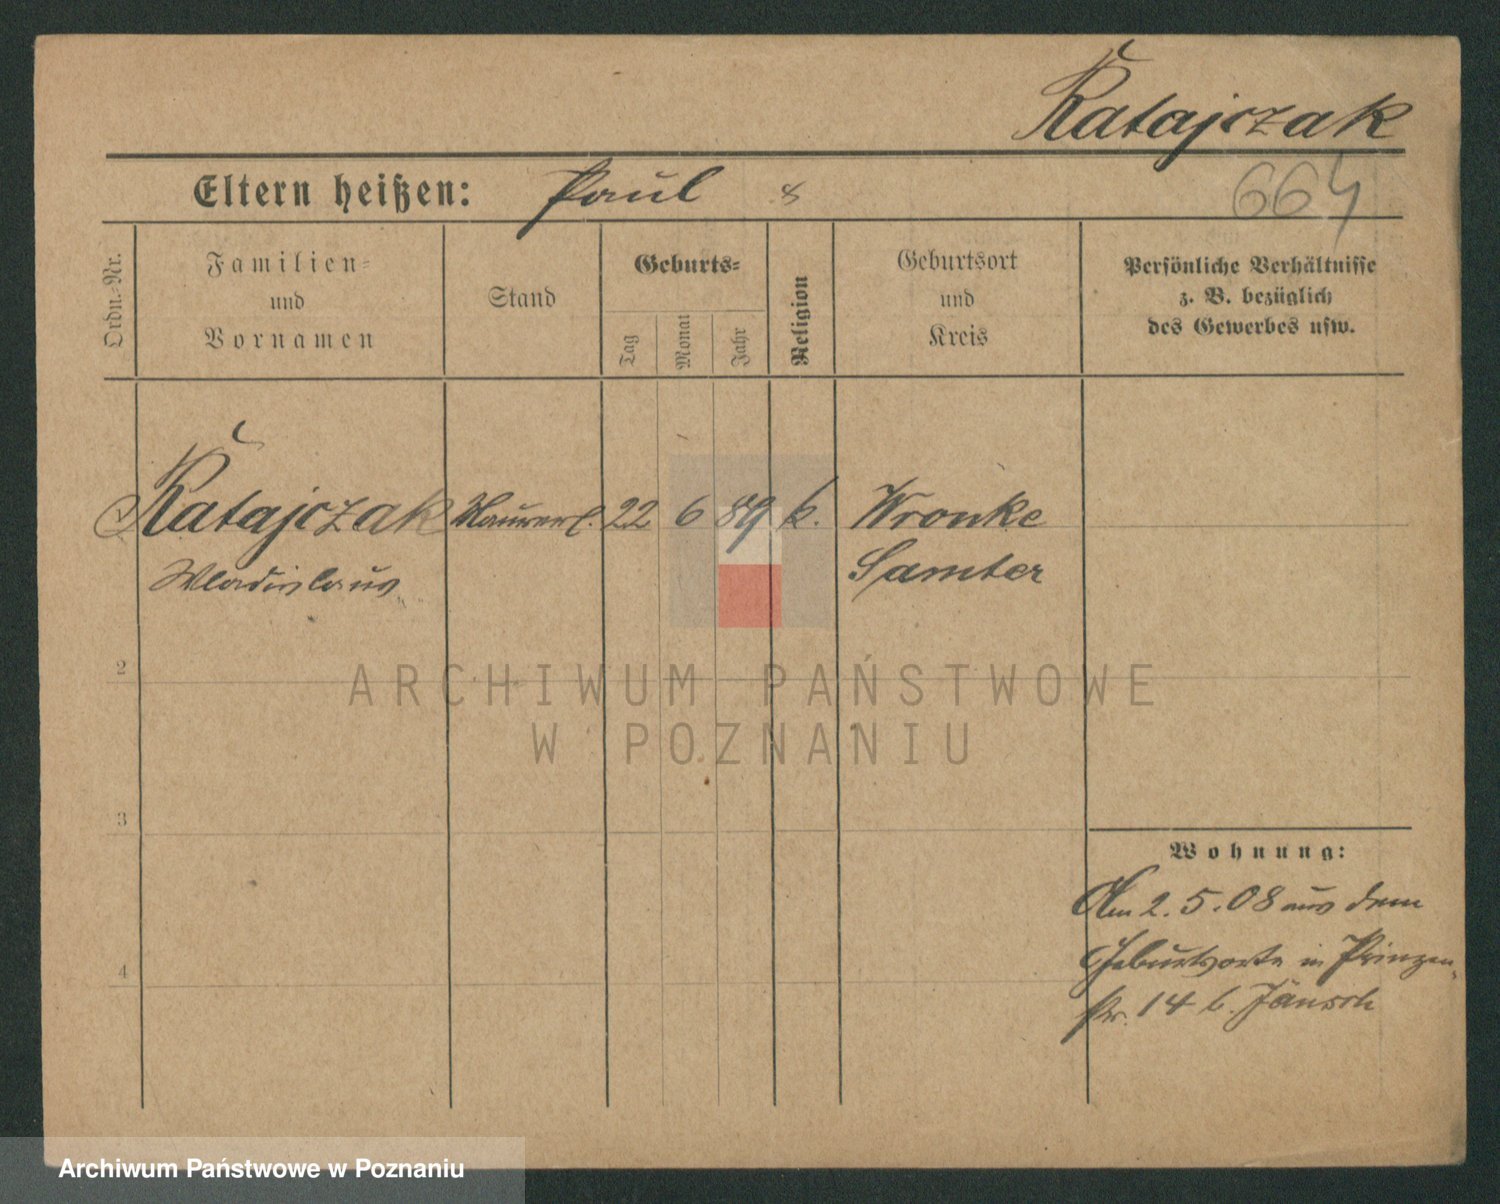 Ratajczak
Eltern heißen: Paul 8
664
Ordn.-Nr.
Familien-
und
Vornamen
Stand
Geburts-
Tag
Monat
Jahr
Religion
Geburtsort
und
Kreis
Persönliche Verhältnisse
z. B. bezüglich
des Gewerbes usw.
Ratajczak Maurerl. 22 6 89 k. Wronke
Wladislaus Samter
2
3
4
Wohnung:
Am 2.5.08 aus dem
Geburtsorte in Prinzen-
str. 14 b. Jänsch
ARCHIWUM PAŃSTWOWE
W POZNANIU
Archiwum Państwowe w Poznaniu